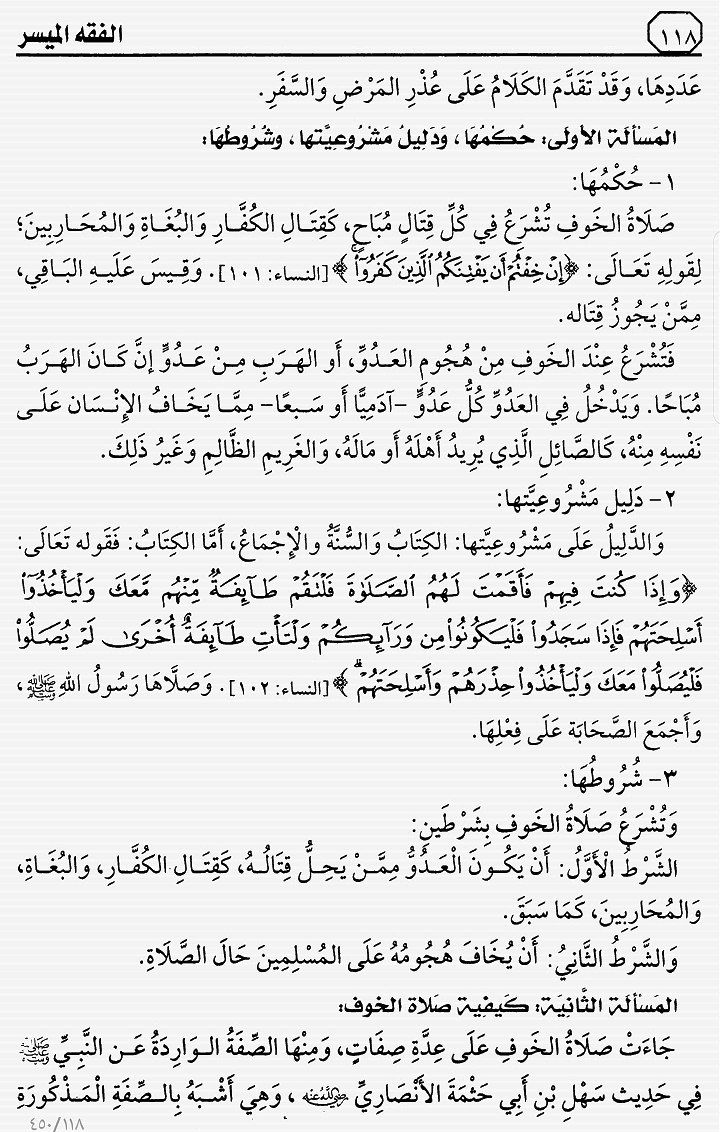 ١١٨ الفقه الميسر
عَدَدِهَا، وَقَدْ تَقَدَّمَ الكَلَامُ عَلَى عُذْرِ المَرْضِ وَالسَّفَرِ.
المَسْألَة الأولى: حُكْمُهَا، وَدَلِيلُ مَشْرُوعِيَّتها، وشُرُوطُهَا:
١- حُكْمُهَا:
صَلَاةُ الخَوفِ تُشْرَعُ فِي كُلِّ قِتَالٍ مُبَاحٍ، كَقِتَالِ الكُفَّارِ وَالبُغَاةِ وَالمُحَارِبِينَ؛
لِقَولِهِ تَعَالَى: ﴿إِنۡ خِفۡتُمۡ أَن يَفۡتِنَكُمُ ٱلَّذِينَ كَفَرُوٓاْۚ﴾ [النساء: ١٠١]. وَقِيسَ عَلَيهِ البَاقِي،
مِمَّنْ يَجُوزُ قِتَاله.
فَتُشْرَعُ عِنْدَ الخَوفِ مِنْ هُجُومِ العَدُوِّ، أَو الهَرَبِ مِنْ عَدُوٍّ إنَّ كَانَ الهَرَبُ
مُبَاحًا. وَيَدْخُلُ فِي العَدُوِّ كُلُّ عَدُوٍّ -آدَمِيًّا أَو سَبعًا- مِمَّا يَخَافُ الإِنْسَان عَلَى
نَفْسِهِ مِنْهُ، كَالصَّائِلِ الَّذِي يُرِيدُ أَهْلَهُ أَو مَالَهُ، وَالغَرِيمِ الظَّالِمِ وَغَيرُ ذَلِكَ.
٢- دَلِيل مَشْرُوعِيَّتها:
وَالدَّلِيلُ عَلَى مَشْرُوعِيَّتِها: الكِتَابُ وَالسُّنَّةُ والإِجْمَاعُ، أَمَّا الكِتَابُ: فَقَوله تَعَالَى:
﴿وَإِذَا كُنتَ فِيهِمۡ فَأَقَمۡتَ لَهُمُ ٱلصَّلَوٰةَ فَلۡتَقُمۡ طَآئِفَةٞ مِّنۡهُم مَّعَكَ وَلۡيَأۡخُذُوٓاْ
أَسۡلِحَتَهُمۡ فَإِذَا سَجَدُواْ فَلۡيَكُونُواْ مِن وَرَآئِكُمۡ وَلۡتَأۡتِ طَآئِفَةٌ أُخۡرَىٰ لَمۡ يُصَلُّواْ
فَلۡيُصَلُّواْ مَعَكَ وَلۡيَأۡخُذُواْ حِذۡرَهُمۡ وَأَسۡلِحَتَهُمۡۗ﴾ [النساء: ١٠٢]. وَصَلَّاهَا رَسُولُ اللهِ ﷺ،
وَأَجْمَعَ الصَّحَابَة عَلَى فِعْلِهَا.
٣- شُرُوطُهَا:
وَتُشْرَعُ صَلَاةُ الخَوفِ بِشَرْطَينِ:
الشَّرْطُ الْأَوَّلُ: أَنْ يَكُونَ الْعَدُوُّ مِمَّنْ يَحِلُّ قِتَالُهُ، كَقِتَالِ الكُفَّارِ، وَالبُغَاةِ،
وَالمُحَارِبِينَ، كَمَا سَبَقَ.
وَالشَّرْطُ الثَّانِيُ: أَنْ يُخَافَ هُجُومُهُ عَلَى المُسْلِمِينَ حَالَ الصَّلَاةِ.
المَسْألَة الثَّانِيَة: كَيفِية صَلاة الخوف:
جَاءَتْ صَلَاةُ الخَوفِ عَلَى عِدَّةِ صِفَاتٍ، وَمِنْهَا الصِّفَةُ الوَارِدَةُ عَن النَّبِيِّ ﷺ
فِي حَدِيث سَهْلِ بْنِ أَبِي حَثْمَةَ الأَنْصَارِيِّ رضي الله عنه، وَهِيَ أَشْبَهُ بِالصِّفَةِ المَذْكُورَةِ
٤٥٠/١١٨